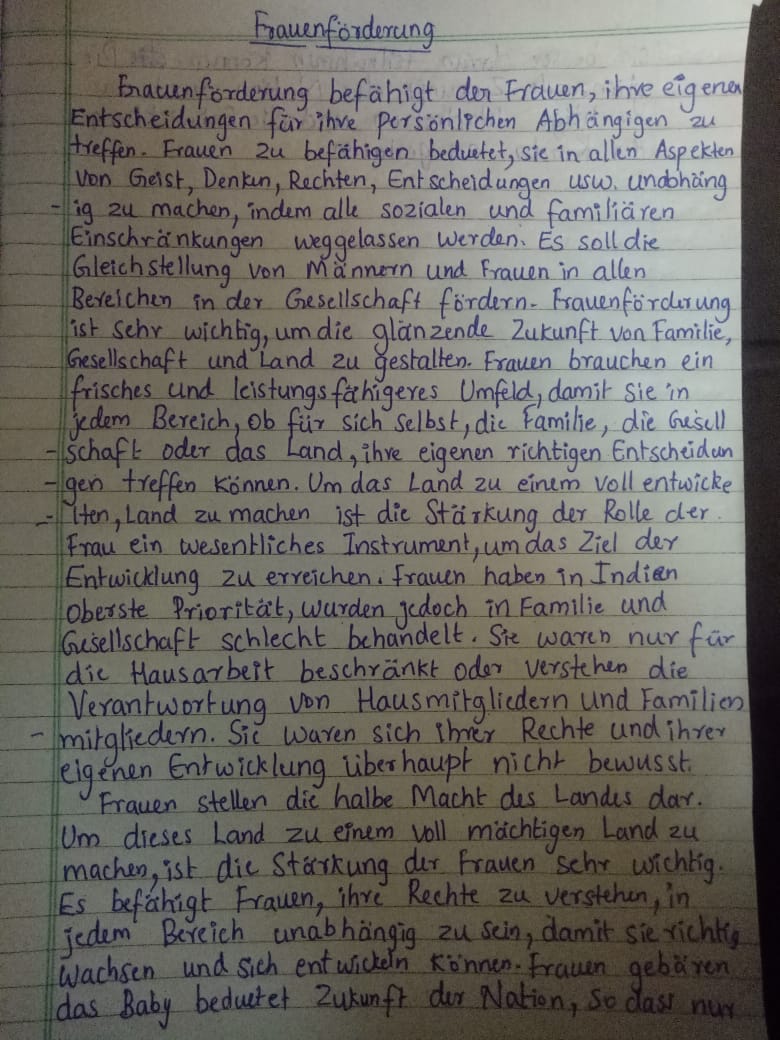 Frauenförderung
Frauenförderung befähigt der Frauen, ihre eigenen
Entscheidungen für ihre persönlichen Abhängigen zu
treffen. Frauen zu befähigen beduetet, sie in allen Aspekten
von Geist, Denken, Rechten, Entscheidungen usw. unabhäng
- ig zu machen, indem alle sozialen und familiären
Einschränkungen weggelassen werden. Es soll die
Gleichstellung von Männern und Frauen in allen
Bereichen in der Gesellschaft fördern. Frauenförderung
ist sehr wichtig, um die glänzende Zukunft von Familie,
Gesellschaft und Land zu gestalten. Frauen brauchen ein
frisches und leistungsfähigeres Umfeld, damit sie in
jedem Bereich, ob für sich selbst, die Familie, die Gesell
- schaft oder das Land, ihre eigenen richtigen Entscheidun
- gen treffen können. Um das Land zu einem voll entwicke
- lten, Land zu machen ist die Stärkung der Rolle der
Frau ein wesentliches Instrument, um das Ziel der
Entwicklung zu erreichen. Frauen haben in Indien
oberste Priorität, wurden jedoch in Familie und
Gesellschaft schlecht behandelt. Sie waren nur für
die Hausarbeit beschränkt oder verstehen die
Verantwortung von Hausmitgliedern und Familien
- mitgliedern. Sie waren sich ihrer Rechte und ihrer
eigenen Entwicklung überhaupt nicht bewusst.
Frauen stellen die halbe Macht des Landes dar.
Um dieses Land zu einem voll mächtigen Land zu
machen, ist die Stärkung der Frauen sehr wichtig.
Es befähigt Frauen, ihre Rechte zu verstehen, in
jedem Bereich unabhängig zu sein, damit sie richtig
wachsen und sich entwickeln können. Frauen gebären
das Baby beduetet Zukunft der Nation, so dass nur